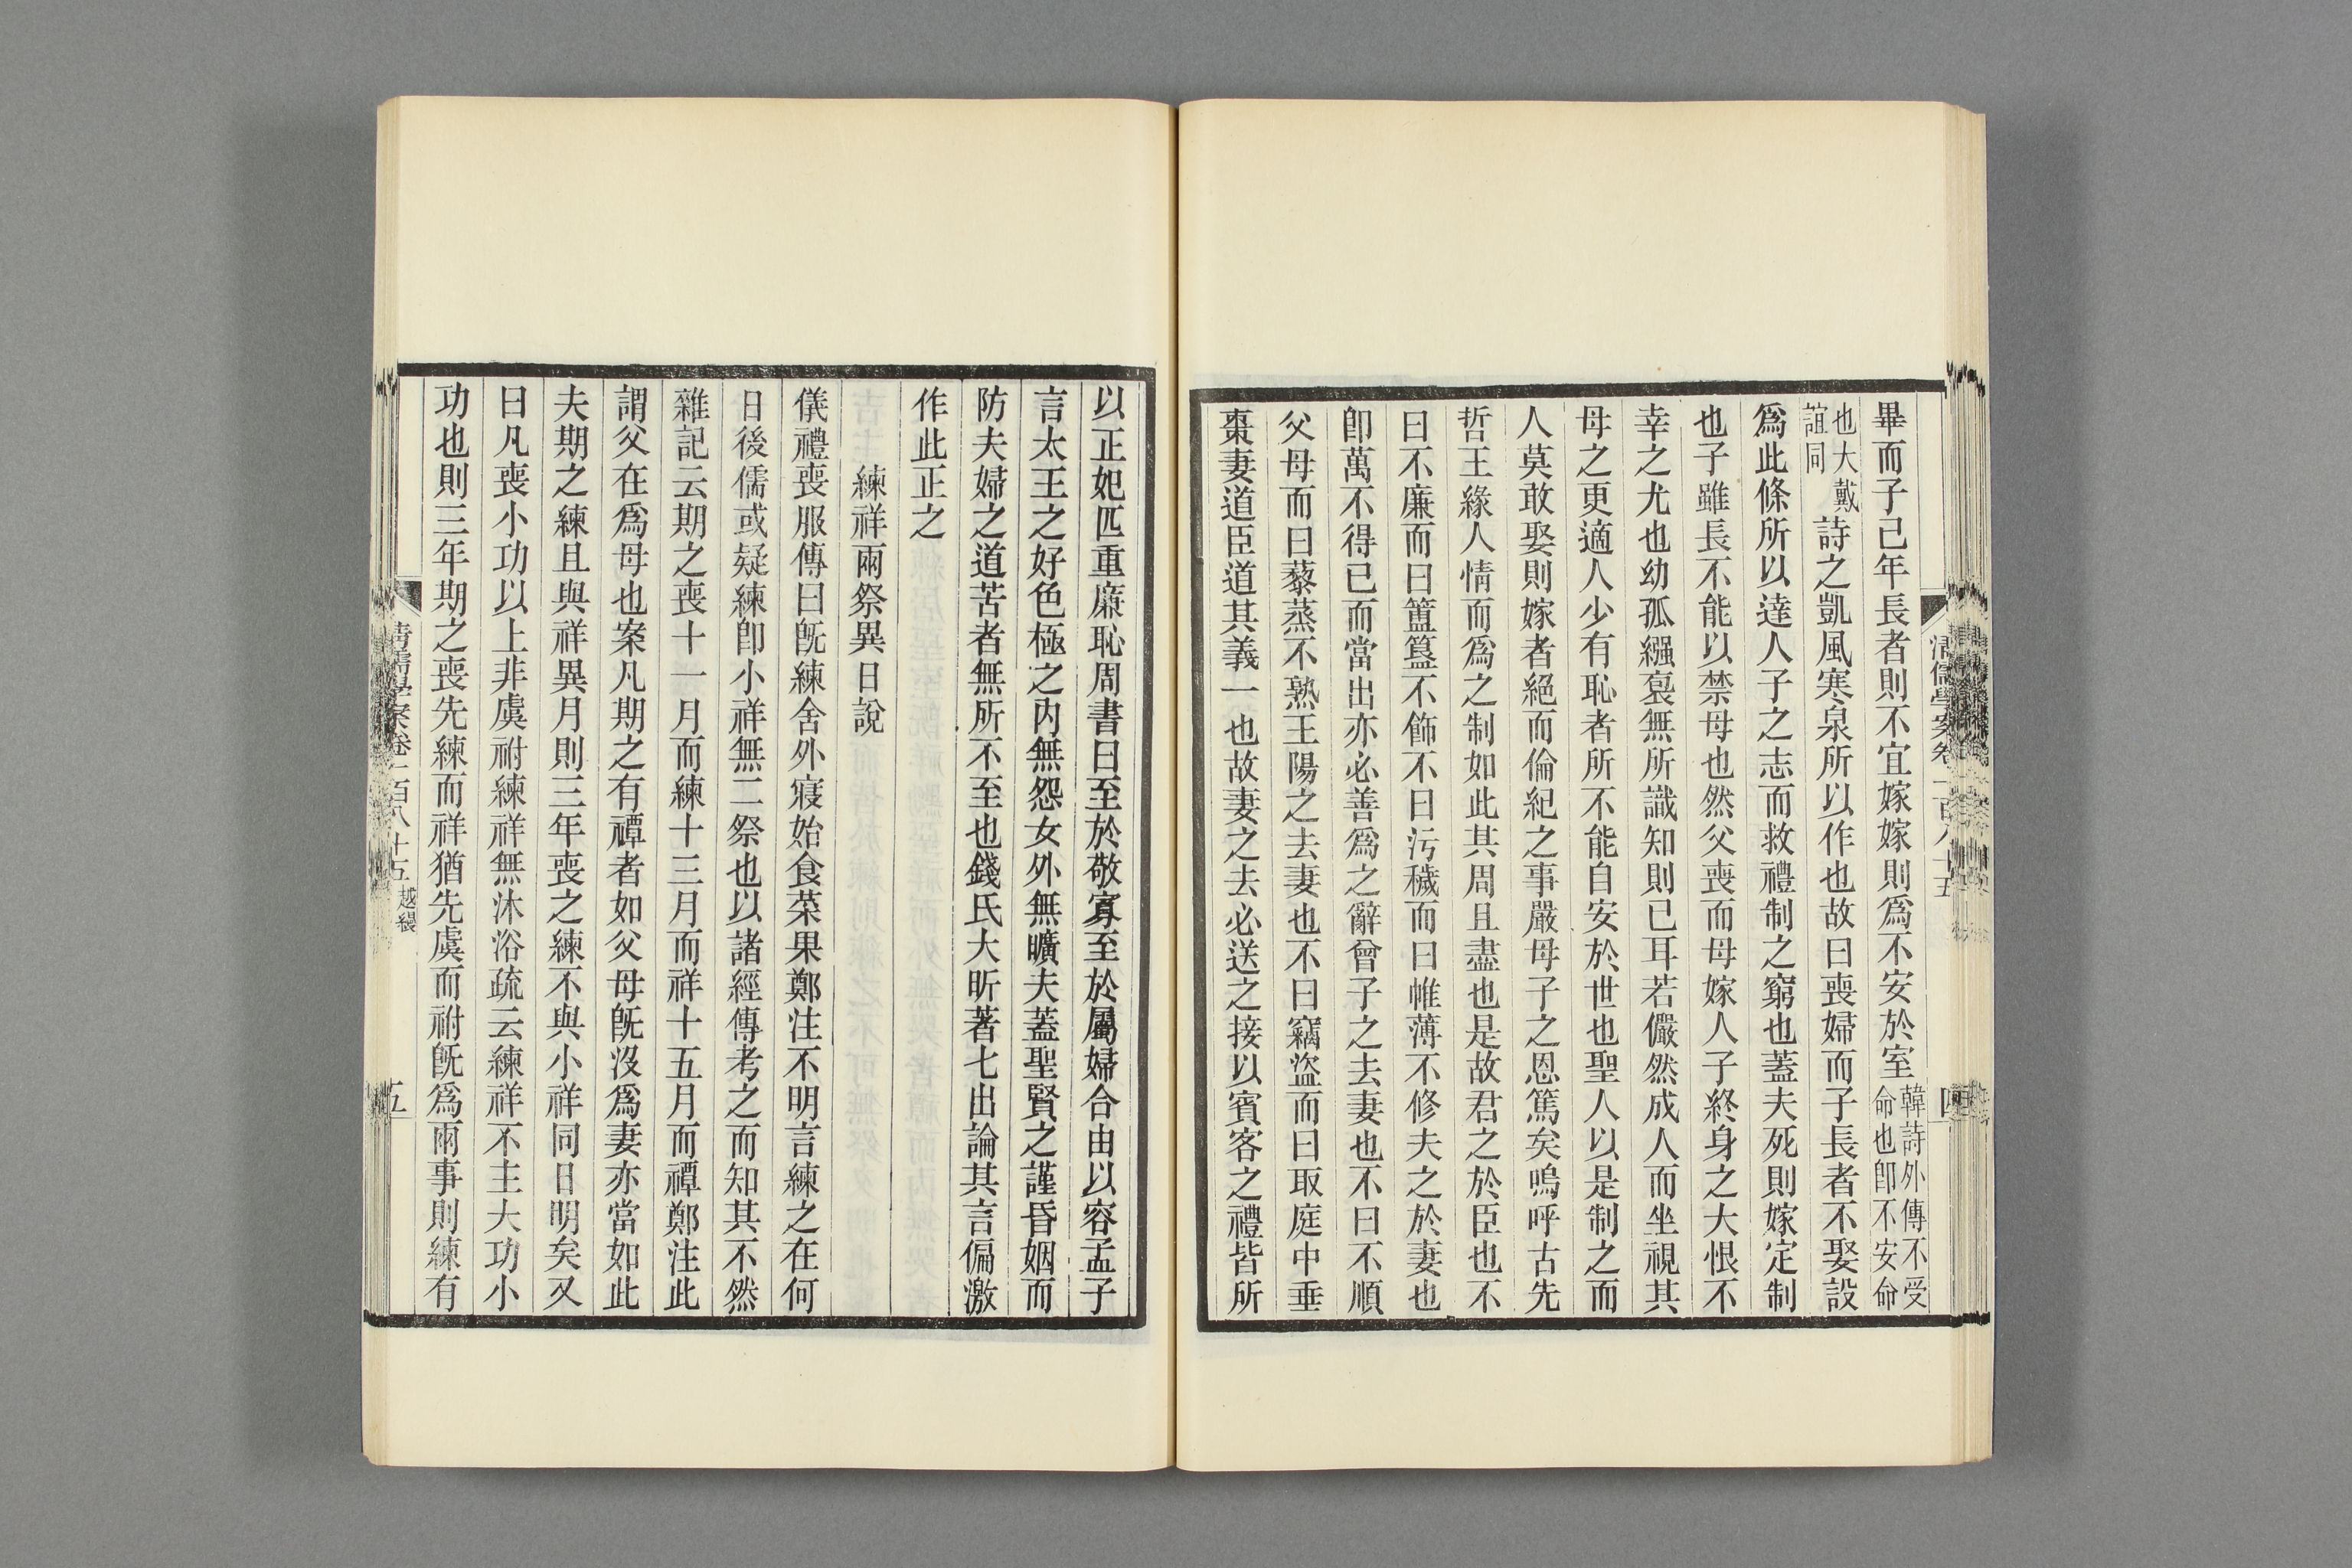 畢而子己年長者則不宜嫁嫁則爲不安於室韓詩外傳不受命也卽不安命
也大戴誼同詩之凱風寒泉所以作也故曰喪婦而子長者不娶設
爲此條所以達人子之志而救禮制之窮也蓋夫死則嫁定制
也子雖長不能以禁母也然父喪而母嫁人子終身之大恨不
幸之尤也幼孤繈裒無所識知則已耳若儼然成人而坐視其
母之更適人少有恥者所不能自安於世也聖人以是制之而
人莫敢娶則嫁者絕而倫紀之事嚴母子之恩篤矣嗚呼古先
哲王緣人情而爲之制如此其周且盡也是故君之於臣也不
曰不廉而曰簠簋不飾不曰污穢而曰帷薄不修夫之於妻也
卽萬不得已而當出亦必善爲之辭曾子之去妻也不曰不順
父母而曰藜蒸不熟王陽之去妻也不曰竊盜而曰取庭中垂
棗妻道臣道其義一也故妻之去必送之接以賓客之禮皆所
清儒學案卷二百八十五
四
以正妃匹重廉恥周書曰至於敬寡至於屬婦合由以容孟子
言太王之好色極之內無怨女外無曠夫蓋聖賢之謹昏姻而
防夫婦之道苦者無所不至也錢氏大昕著七出論其言偏激
作此正之
練祥兩祭異日說
儀禮喪服傳曰旣練舍外寢始食菜果鄭注不明言練之在何
日後儒或疑練卽小祥無二祭也以諸經傳考之而知其不然
雜記云期之喪十一月而練十三月而祥十五月而禫鄭注此
謂父在爲母也案凡期之有禫者如父母旣沒爲妻亦當如此
夫期之練且與祥異月則三年喪之練不與小祥同日明矣又
曰凡喪小功以上非虞祔練祥無沐浴疏云練祥不主大功小
功也則三年期之喪先練而祥猶先虞而祔旣爲兩事則練有
清儒學案卷一百八十五 越縵
五